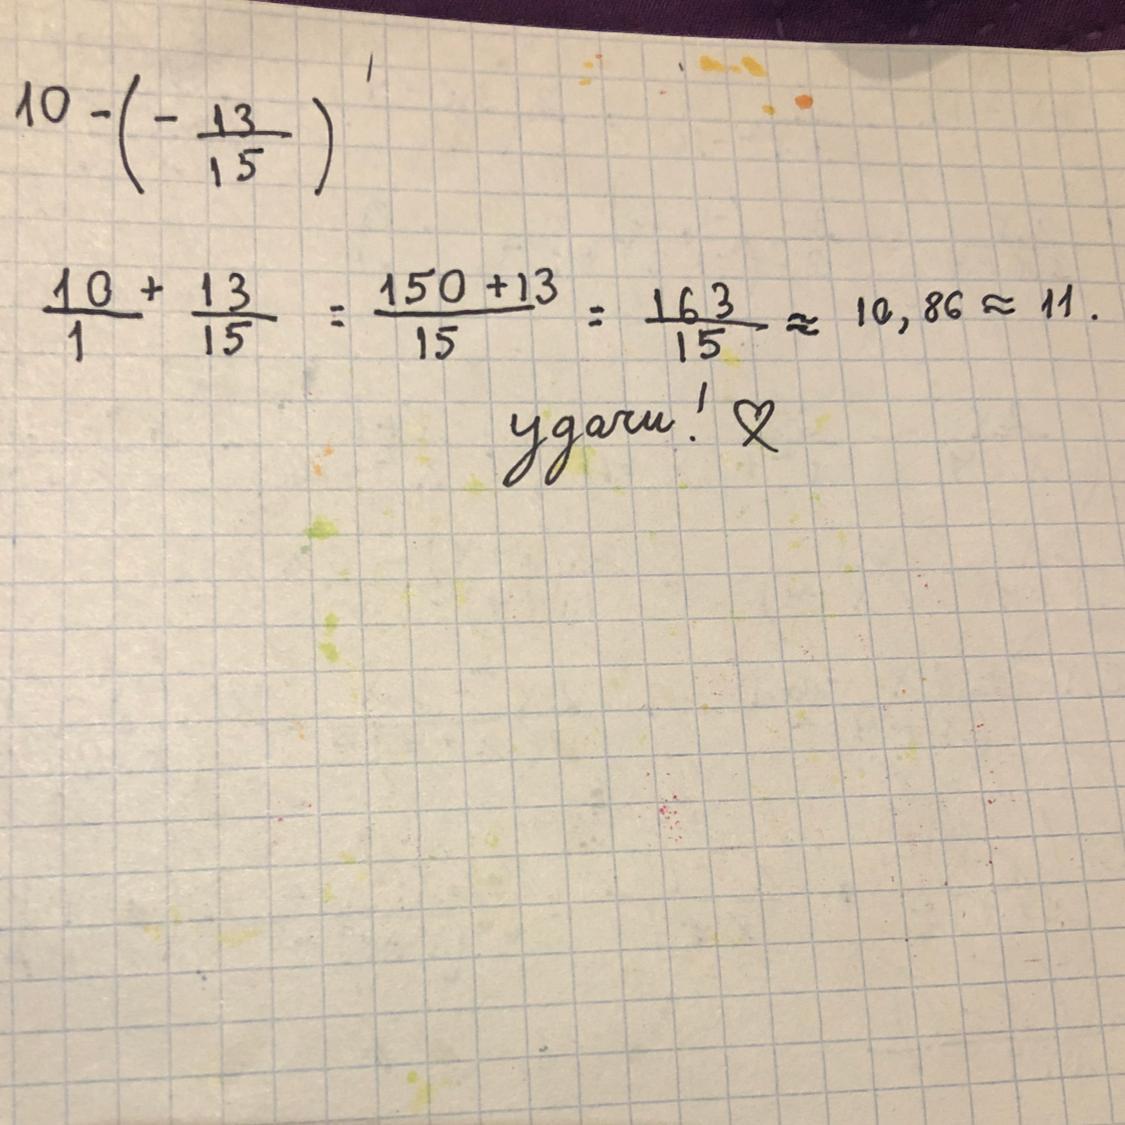 10 - (- 13/15)
10/1 + 13/15 = 150 + 13/15 = 163/15 ≈ 10,86 ≈ 11.
удачи! ♡